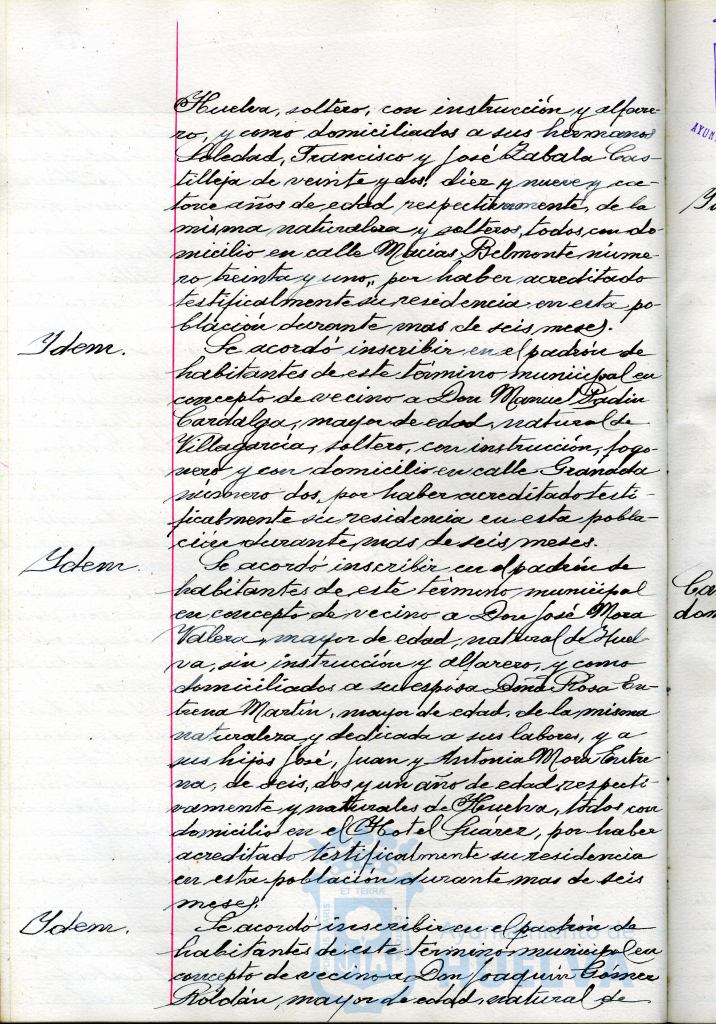 Huelva, soltero, con instrucción y alfare-
ro, y como domiciliados a sus hermanos
Soledad, Francisco y José Zabala Cas-
tilleja de veinte y dos, diez y nueve y ca-
torce años de edad respectivamente, de la
misma naturaleza y solteros, todos con do-
micilio en calle Macias Belmonte núme-
ro treinta y uno, por haber acreditado
testificalmente su residencia en esta po-
blación durante mas de seis meses.
Ydem. Se acordó inscribir en el padrón de
habitantes de este término municipal en
concepto de vecino a Don Manuel Padin
Cardalga, mayor de edad, natural de
Villagarcía, soltero, con instrucción, fogo-
nero y con domicilio en calle Granada
número dos, por haber acreditado testi-
ficalmente su residencia en esta pobla-
ción durante mas de seis meses.
Ydem. Se acordó inscribir en el padrón de
habitantes de este término municipal
en concepto de vecino a Don José Mora
Valera, mayor de edad, natural de Huel-
va, sin instrucción y alfarero, y como
domiciliados a su esposa Doña Rosa En-
trena Martín, mayor de edad, de la misma
naturaleza y dedicada a sus labores, y a
sus hijos José, Juan y Antonia Mora Entre-
na, de seis, dos y un año de edad respecti-
vamente y naturales de Huelva, todos con
domicilio en el Hotel Suárez, por haber
acreditado testificalmente su residencia
en esta población durante mas de seis
meses.
Ydem. Se acordó inscribir en el padrón de
habitantes de este término municipal en
concepto de vecino a Don Joaquín Gómez
Roldán, mayor de edad, natural de
ET TERRÆ
Ayuntamiento de
HUELVA